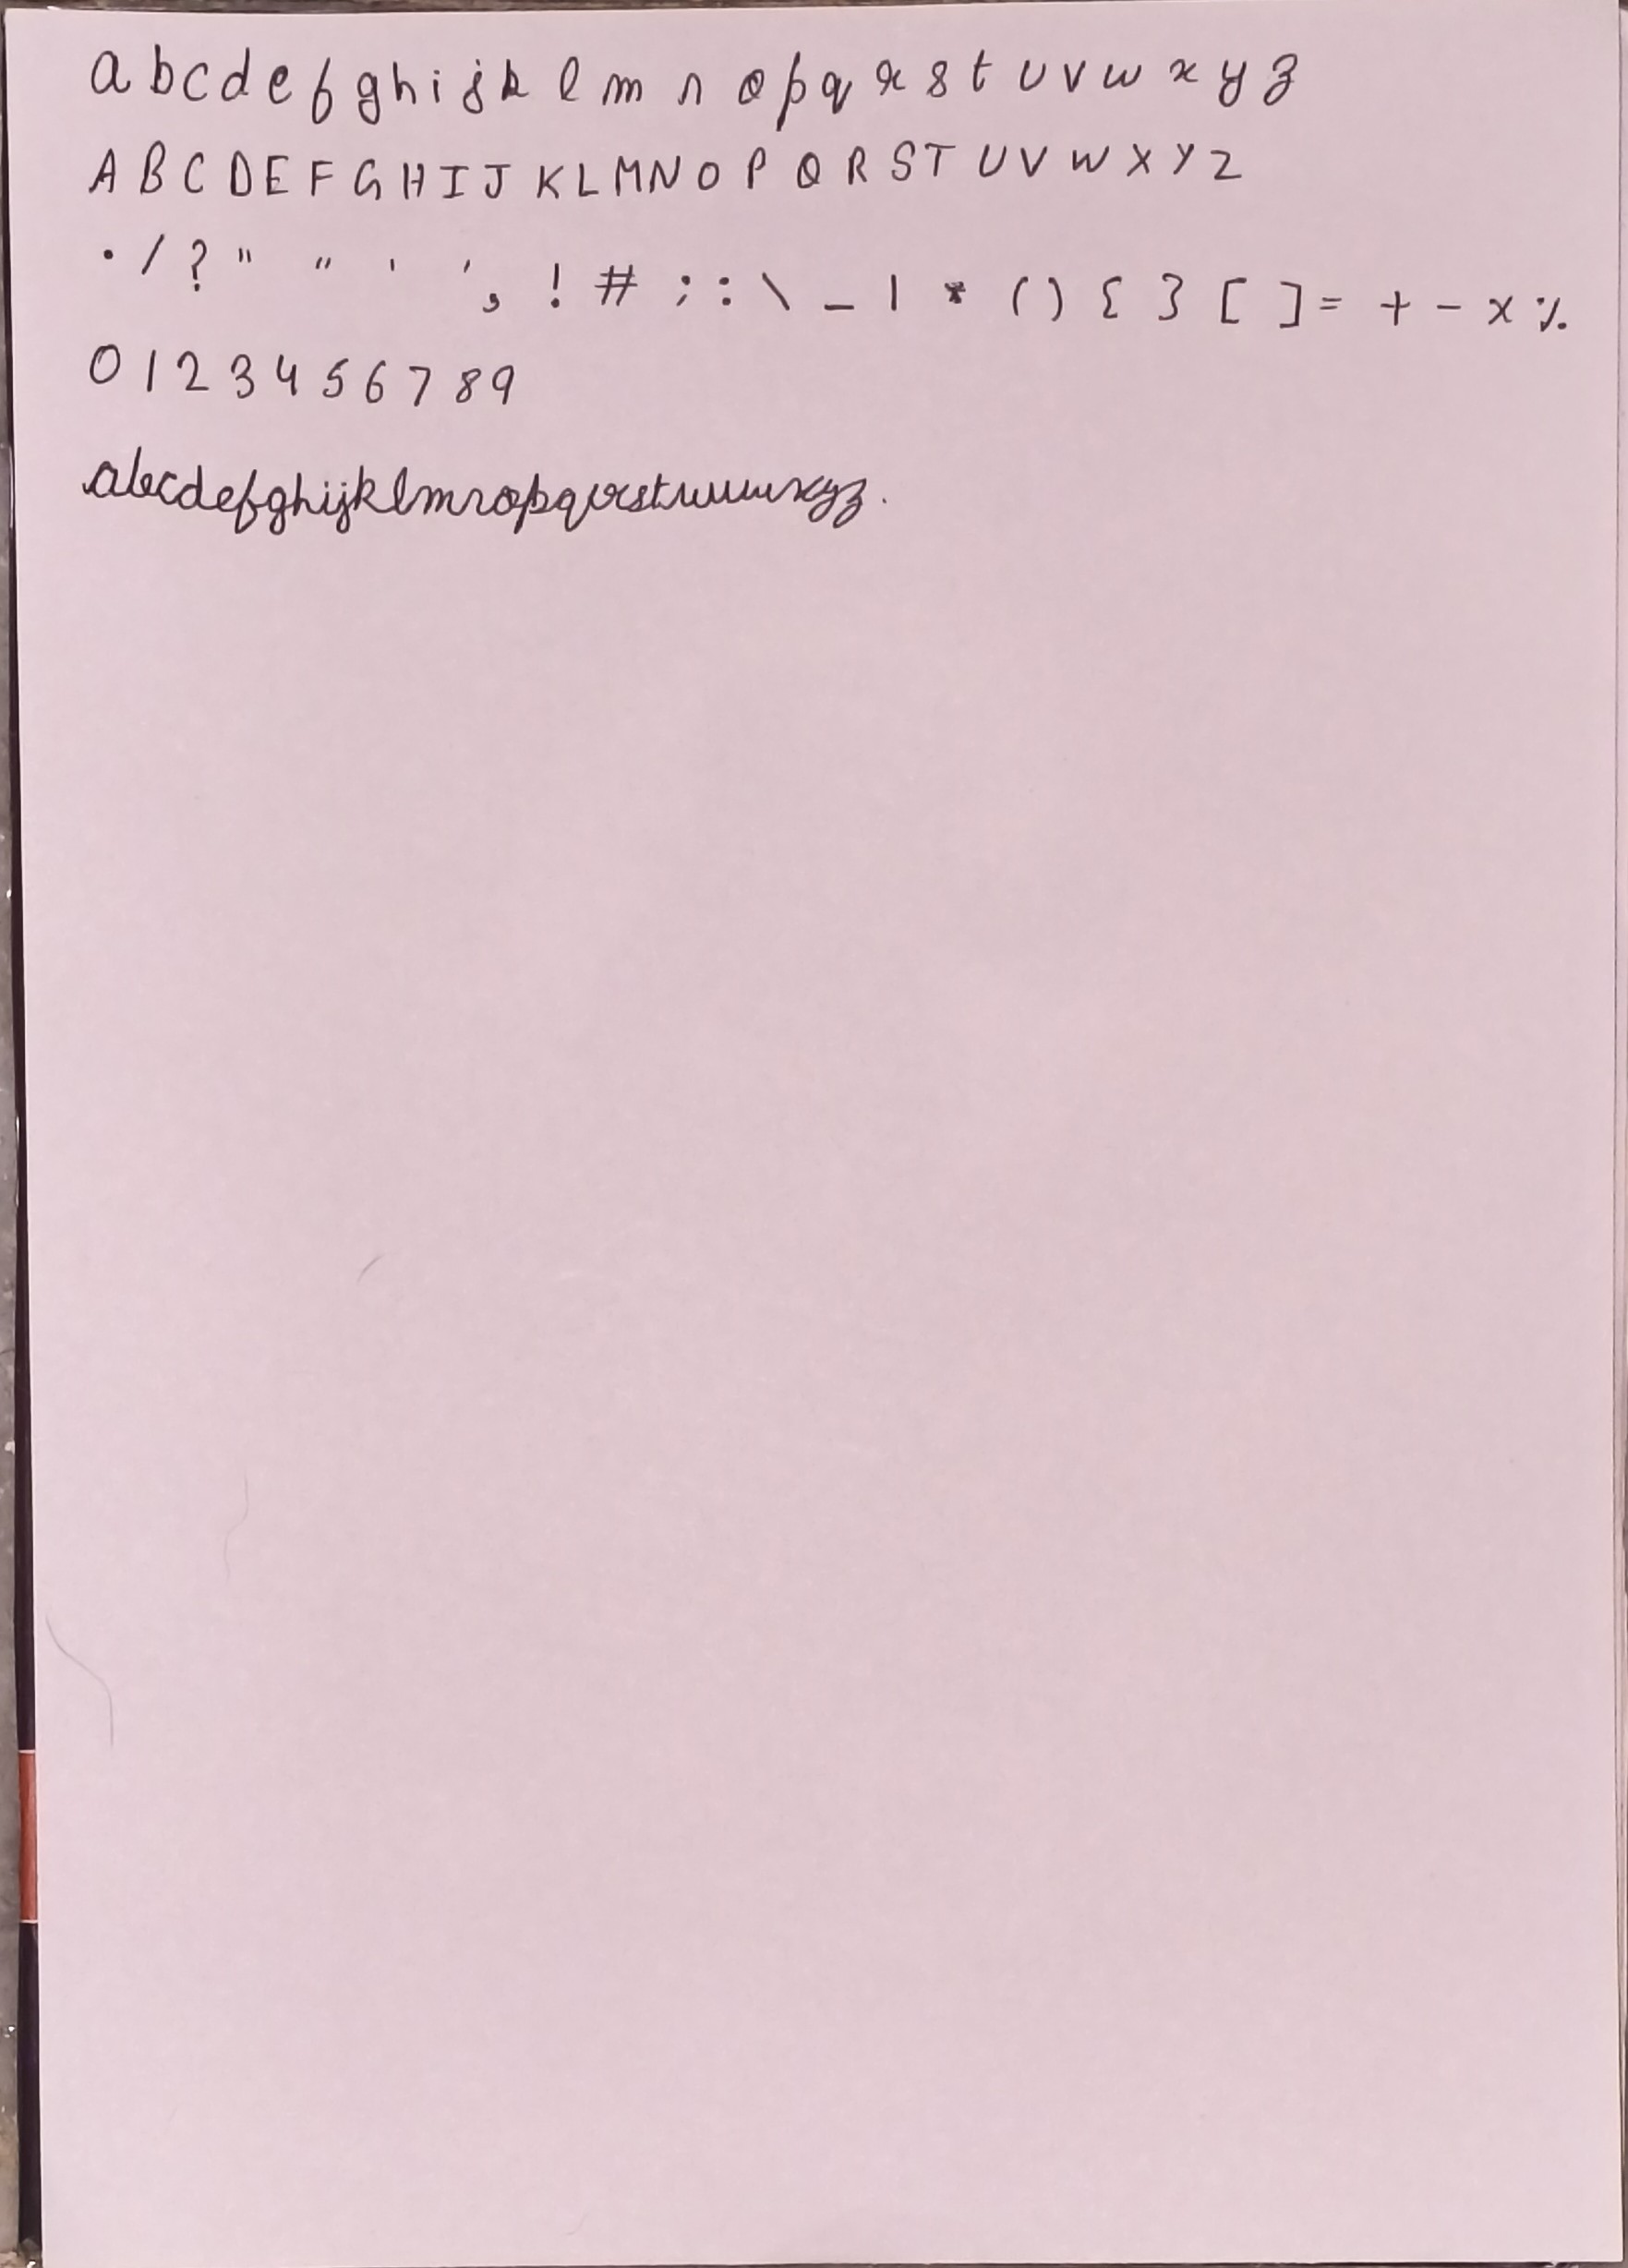 a b c d e f g h i j k l m n o p q r s t u v w x y z
A B C D E F G H I J K L M N O P Q R S T U V W X Y Z
. / ? " " ' ' , ! # ; : \ _ | * ( ) { } [ ] = + - x %
0 1 2 3 4 5 6 7 8 9
abcdefghijklmnopqrstuvwxyz.